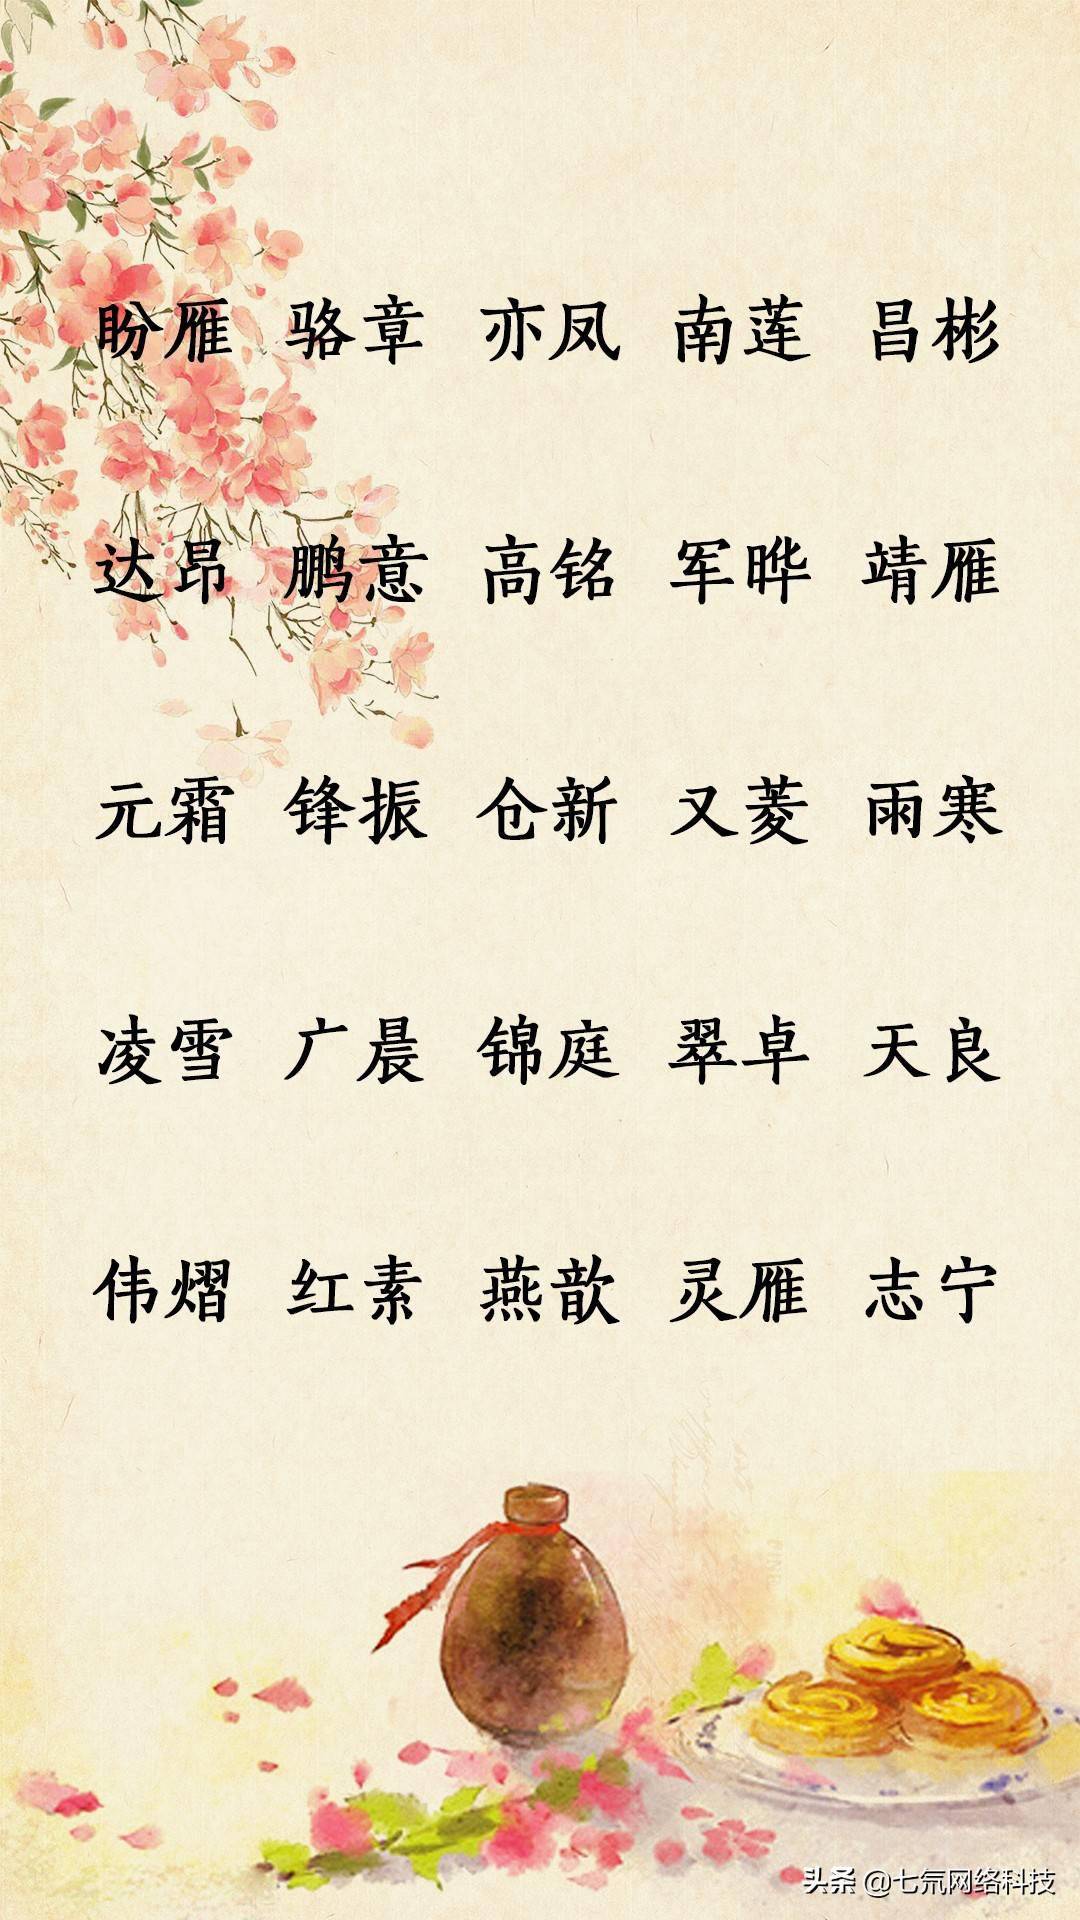 盼雁 骆章 亦凤 南莲 昌彬
达昂 鹏意 高铭 军晔 靖雁
元霜 锋振 仓新 又菱 雨寒
凌雪 广晨 锦庭 翠卓 天良
伟熠 红素 燕歆 灵雁 志宁
头条 @七氘网络科技